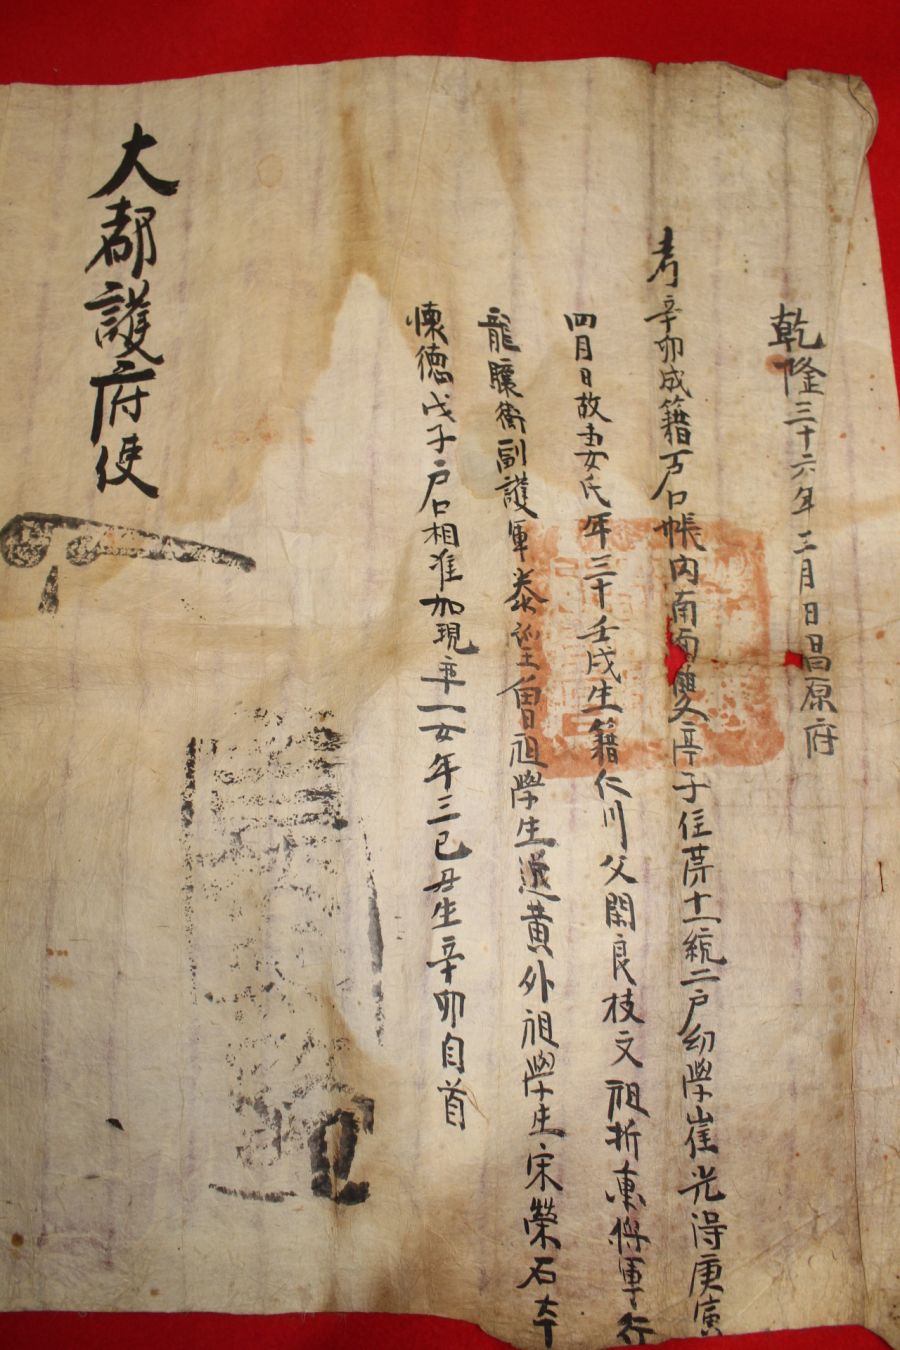 乾隆三十六年二月日昌原府
考辛卯成籍戶口帳內南面雙亭子住第十一統二戶幼學崔光得庚寅
四月日故妻氏年三十壬戌生籍仁川父閑良枝文祖折衝將軍行
龍驤衛副護軍泰 曾祖學生 黃外祖學生宋榮石本
懷德戊子戶口相准加現率一女年三己丑生辛卯自首
大都護府使